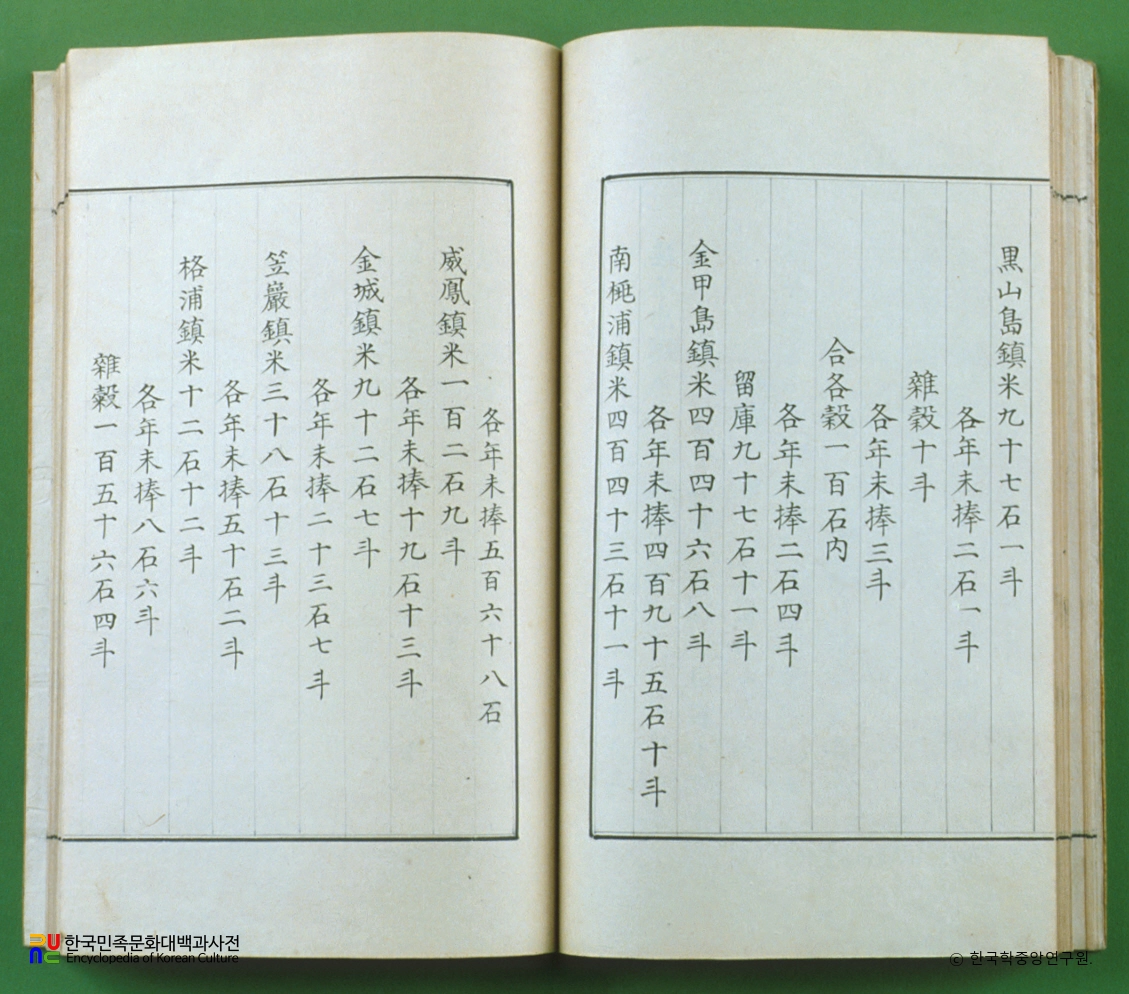 黒山島鎮米九十七石一斗
各年未捧二石一斗
雜穀十斗
各年未捧三斗
合各穀一百石内
各年未捧二石四斗
留庫九十七石十一斗
金甲島鎮米四百四十六石八斗
各年未捧四百九十五石十斗
南桃浦鎮米四百四十三石十一斗
各年未捧五百六十八石
威鳳鎮米一百二石九斗
各年未捧十九石十三斗
金城鎮米九十二石七斗
各年未捧二十三石七斗
笠巖鎮米三十八石十三斗
各年未捧五十石二斗
格浦鎮米十二石十二斗
各年未捧八石六斗
雜穀一百五十六石四斗
한국민족문화대백과사전
Encyclopedia of Korean Culture
© 한국학중앙연구원.